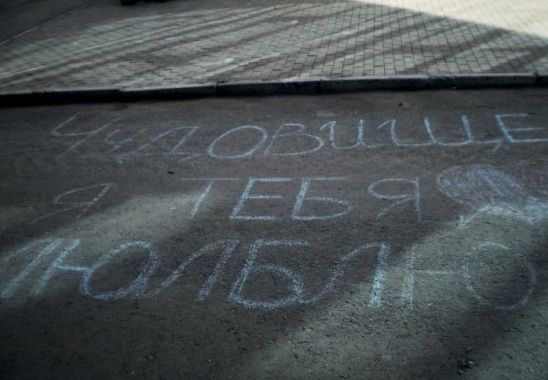 ЧУДОВИЩЕ
Я ТЕБЯ
ЛЮЛБЛЮ